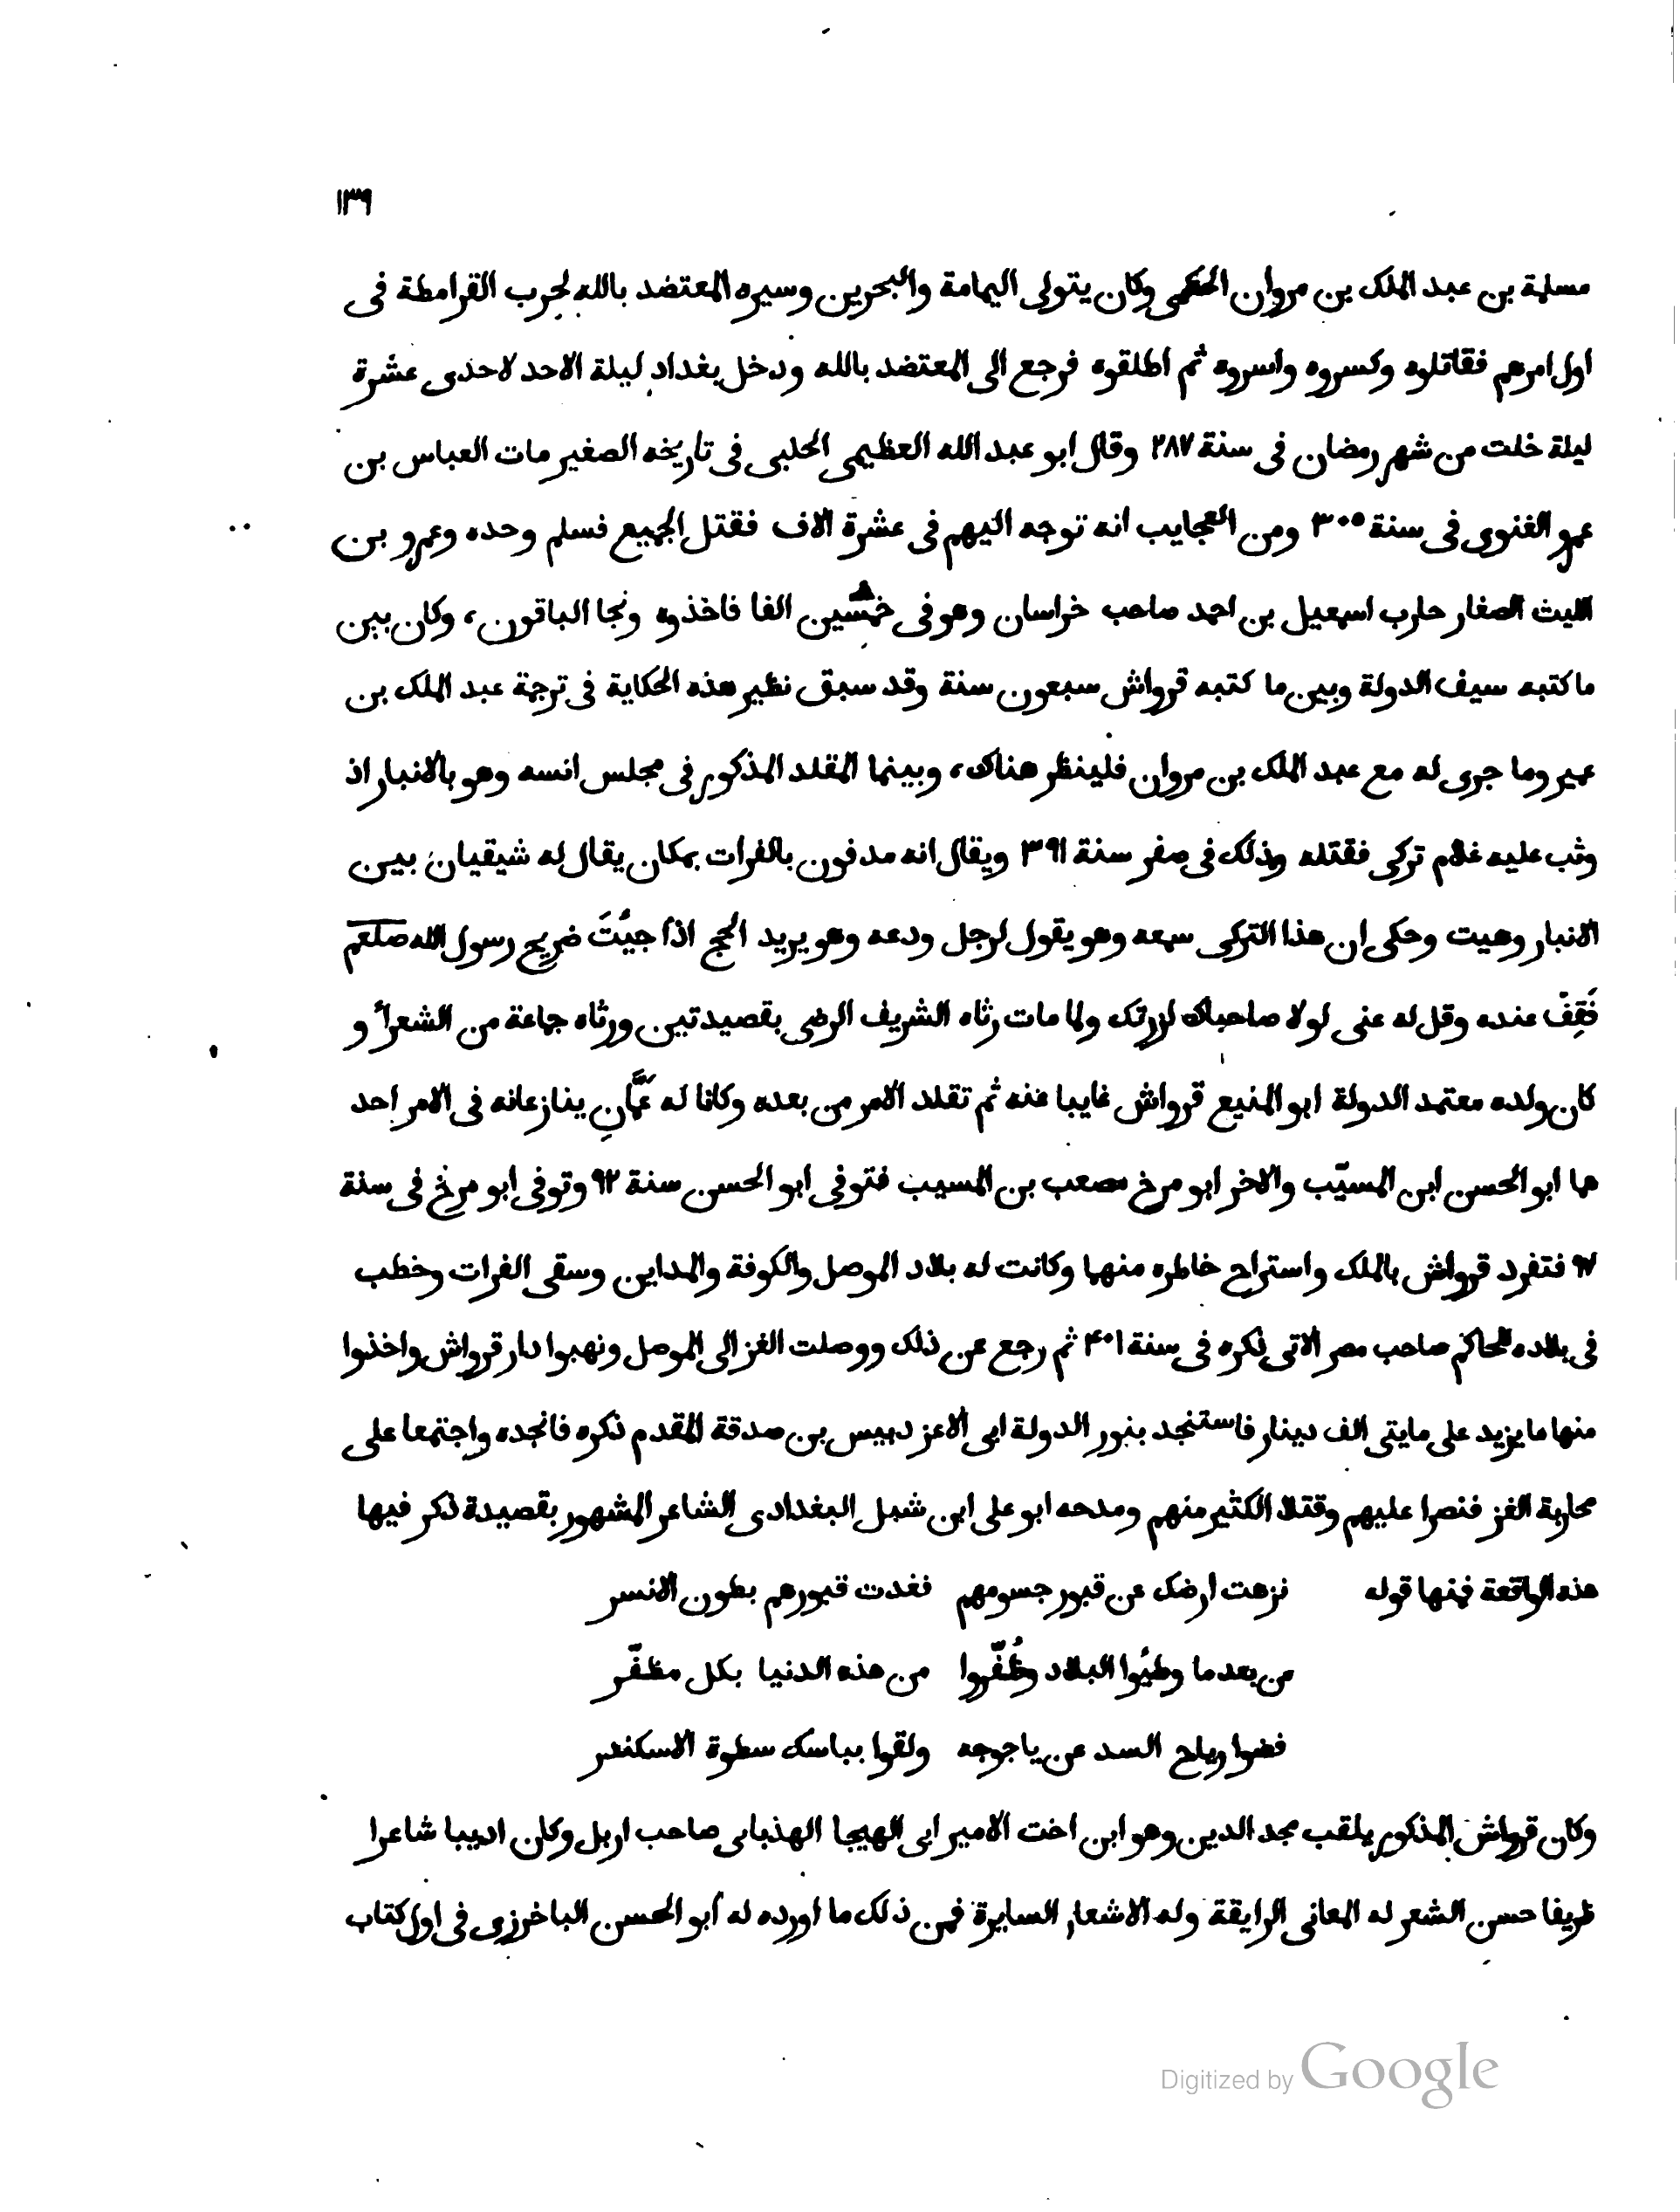 ١٣٩
مسلمة بن عبد الملك بن مروان الحكمى وكان يتولى اليمامة والبحرين وسيره المعتضد بالله لحرب القرامطة فى
اول امرهم فقاتلوه وكسروه واسروه ثم اطلقوه فرجع الى المعتضد بالله ودخل بغداد ليلة الاحد لاحدى عشرة
ليلة خلت من شهر رمضان فى سنة ٢٨٧ وقال ابو عبد الله العظيمى الحلبى فى تاريخه الصغير مات العباس بن
عمرو الغنوى فى سنة ٣٠٥ ومن العجايب انه توجه اليهم فى عشرة الاف فقتل الجميع فسلم وحده وعمرو بن
الليث الصفار حارب اسمعيل بن احمد صاحب خراسان وهو فى خمسين الفا فاخذوه ونجا الباقون، وكان بين
ما كتبه سيف الدولة وبين ما كتبه قرواش سبعون سنة وقد سبق نظير هذه الحكاية فى ترجمة عبد الملك بن
عمير وما جرى له مع عبد الملك بن مروان فلينظر هناك، وبينما المقلد المذكور فى مجلس انسه وهو بالانبار اذ
وثب عليه غلام تركى فقتله وذلك فى صفر سنة ٣٩١ ويقال انه مدفون بالفرات بمكان يقال له شيقيان بين
الانبار وهيت وحكى ان هذا التركى سمعه وهو يقول لرجل ودعه وهو يريد الحج اذا جيْتَ ضريح رسول الله صلعم
فَقِفْ عنده وقل له عنى لولا صاحباك لزرتك ولما مات رثاه الشريف الرضى بقصيدتين ورثاه جماعة من الشعرأ و
كان ولده معتمد الدولة ابو المنيع قرواش غايبا عنه ثم تقلد الامر من بعده وكانا له عَمَّانِ ينازعانه فى الامر احد
هما ابو الحسن ابن المسيّب والاخر ابو مرخ مصعب بن المسيب فتوفى ابو الحسن سنة ٩٢ وتوفى ابو مرخ فى سنة
٩٧ فتفرد قرواش بالملك واستراح خاطره منهما وكانت له بلاد الموصل والكوفة والمداين وسقى الفرات وخطب
فى بلاده للحاكم صاحب مصر الاتى ذكره فى سنة ٤٠١ ثم رجع عن ذلك ووصلت الغز الى الموصل ونهبوا دار قرواش واخذوا
منها ما يزيد على مايتى الف دينار فاستنجد بنور الدولة ابى الاعز دبيس بن صدقة المقدم ذكره فانجده واجتمعا على
محاربة الغز فنصرا عليهم وقتلا الكثير منهم ومدحه ابو على ابن شبل البغدادى الشاعر المشهور بقصيدة ذكر فيها
هذه الواقعة فمنها قوله نزهت ارضك عن قبور جسومهم فغدت قبورهم بطون الانسر
من بعد ما وطيُوا البلاد وظُفّروا من هذه الدنيا بكل مظفّر
فضوا رباح السد عن ياجوجه ولقوا بباسك سطوة الاسكندر
وكان قرواش المذكور يلقب مجد الدين وهو ابن اخت الامير ابى الهيجا الهذبانى صاحب اربل وكان اديبا شاعرا
ظريفا حسن الشعر له المعانى الرايقة وله الاشعار السايرة فمن ذلك ما اورده له ابو الحسن الباخرزى فى اول كتاب
Digitized by Google